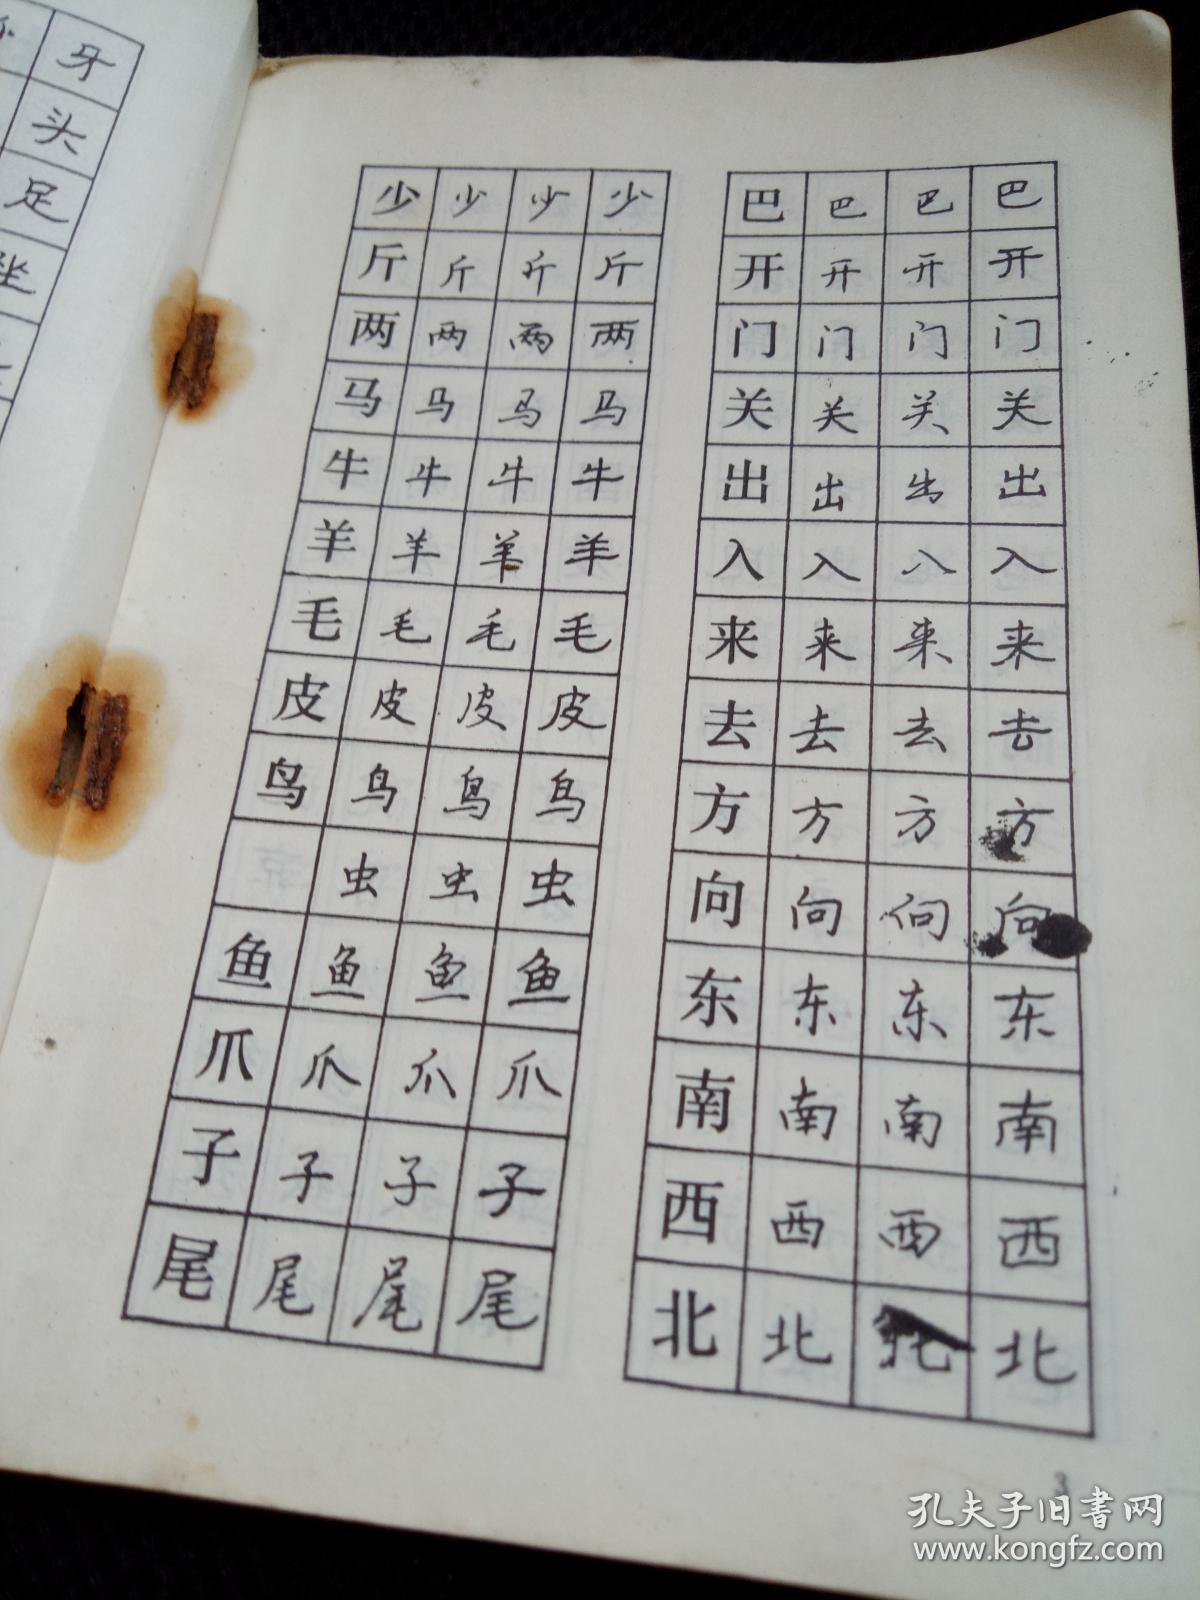 牙
头
足
坐
少 少 少 少
斤 斤 斤 斤
两 两 两 两
马 马 马 马
牛 牛 牛 牛
羊 羊 羊 羊
毛 毛 毛 毛
皮 皮 皮 皮
鸟 鸟 鸟 鸟
虫 虫 虫
鱼 鱼 鱼 鱼
爪 爪 爪 爪
子 子 子 子
尾 尾 尾 尾
巴 巴 巴 巴
开 开 开 开
门 门 门 门
关 关 关 关
出 出 出 出
入 入 入 入
来 来 来 来
去 去 去 去
方 方 方 方
向 向 向 向
东 东 东 东
南 南 南 南
西 西 西 西
北 北 北 北
3
孔夫子旧書网
www.kongfz.com